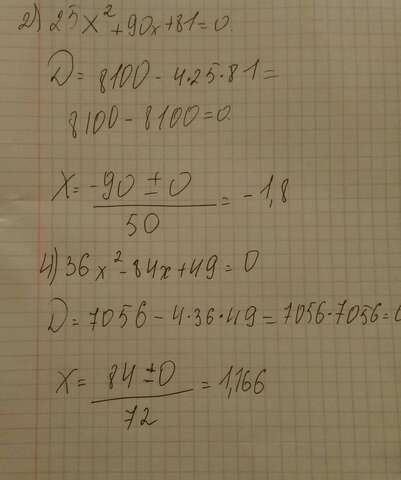 2) 25x² + 90x + 81 = 0
D = 8100 - 4·25·81 =
8100 - 8100 = 0
x = (-90 ± 0)/50 = -1,8
4) 36x² - 84x + 49 = 0
D = 7056 - 4·36·49 = 7056·7056 = 0
x = (84 ± 0)/72 = 1,166